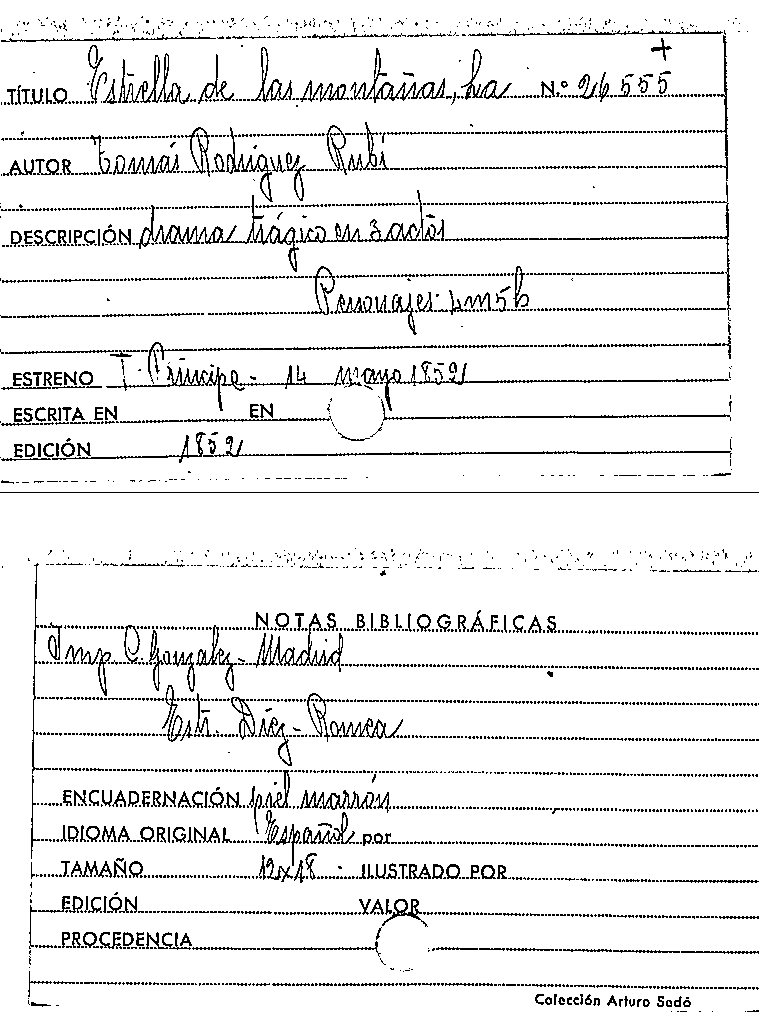 +
TÍTULO Estrella de las montañas, La N.º 26555
AUTOR Tomás Rodriguez Rubí
DESCRIPCIÓN drama trágico en 3 actos
Personajes 4m5h
ESTRENO T. Principe - 14 mayo 1852
ESCRITA EN EN
EDICIÓN 1852
NOTAS BIBLIOGRÁFICAS
Imp C. Gonzalez - Madrid
Estr. Diez - Romea
ENCUADERNACIÓN piel marrón
IDIOMA ORIGINAL Español por
TAMAÑO 12x18 - ILUSTRADO POR
EDICIÓN VALOR
PROCEDENCIA
Colección Arturo Sedó